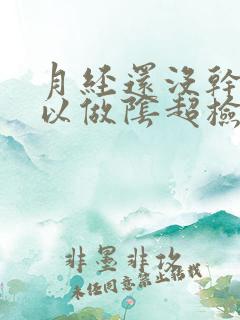 月经还没幹
以做陰超檢
非墨非攻
未任同意禁止转载